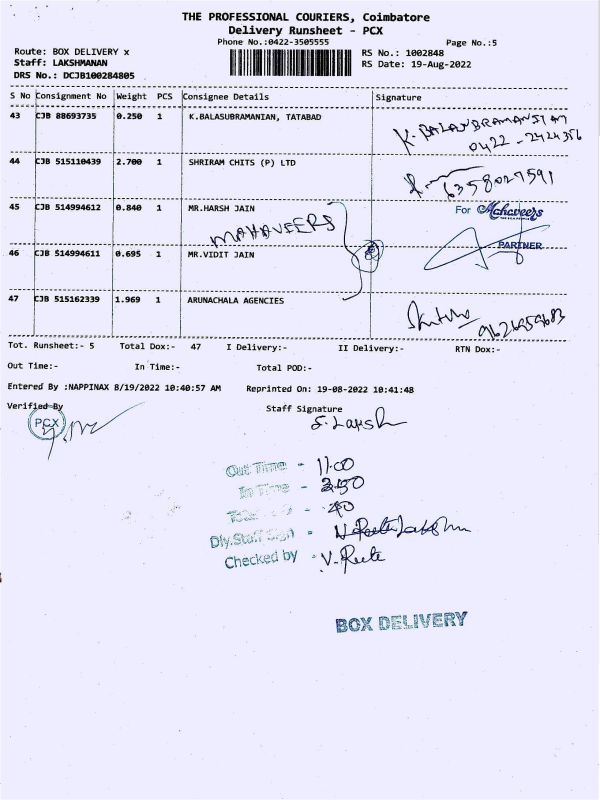 THE PROFESSIONAL COURIERS, Coimbatore
Delivery Runsheet - PCX
Phone No.:0422-3505555
Page No.:5
Route: BOX DELIVERY x
RS No.: 1002848
Staff: LAKSHMANAN
RS Date: 19-Aug-2022
DRS No.: DCJB100284805
S No Consignment No Weight PCS Consignee Details Signature
43 CJB 88693735 0.250 1 K.BALASUBRAMANIAN, TATABAD
K. BALASUBRAMANIYAN
0422-2424356
44 CJB 515110439 2.700 1 SHRIRAM CHITS (P) LTD
6358027591
45 CJB 514994612 0.840 1 MR.HARSH JAIN
For Mahaveers
MAHAVEERS
PARTNER
46 CJB 514994611 0.695 1 MR.VIDIT JAIN
47 CJB 515162339 1.969 1 ARUNACHALA AGENCIES
9626959683
Tot. Runsheet:- 5 Total Dox:- 47 I Delivery:- II Delivery:- RTN Dox:-
Out Time:- In Time:- Total POD:-
Entered By :NAPPINAX 8/19/2022 10:40:57 AM Reprinted On: 19-08-2022 10:41:48
Verified By Staff Signature
PCX
S. Laksh
Out Time - 11.00
In Time - 3.50
- 40
Dly.Staff Sign -
Checked by - V. Reete
BOX DELIVERY